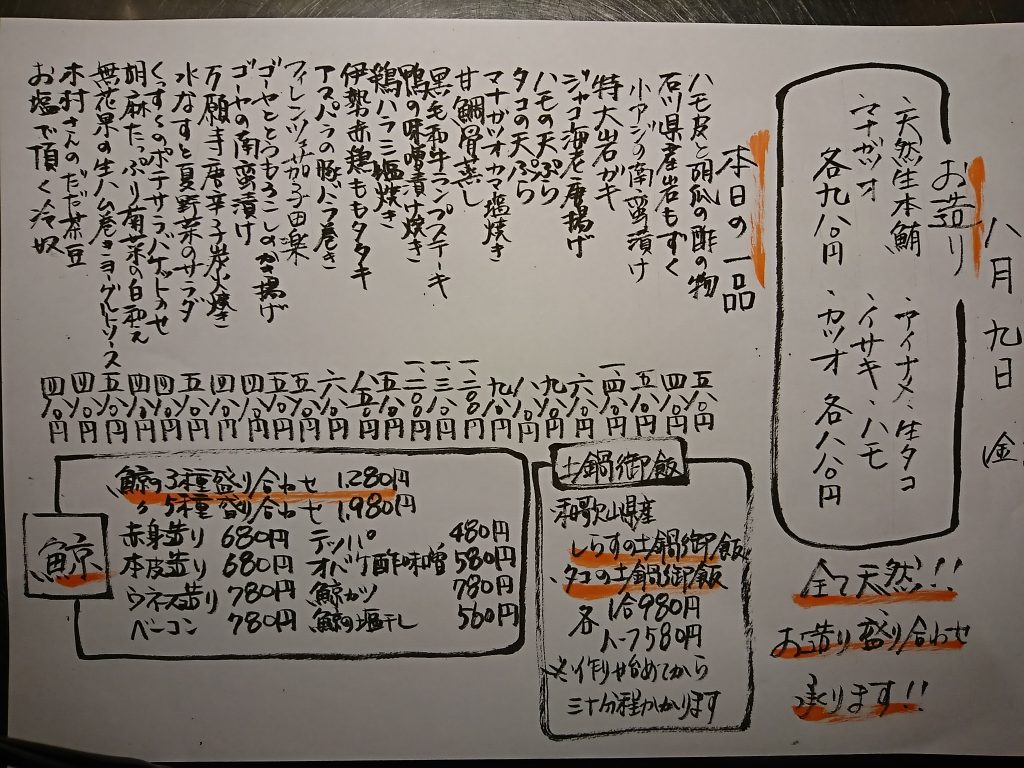 八月九日 金
お造り
天然生本鮪
マナガツオ
各九八〇円
アイナメ、生タコ
イサキ、ハモ
カツオ 各八八〇円
全て天然!!
お造り盛り合わせ
承ります!!
本日の一品
ハモ皮と胡瓜の酢の物 五八〇円
石川県産岩もずく 四八〇円
小アジの南蛮漬け 五八〇円
特大岩ガキ
ジャコ海老唐揚げ 六八〇円
ハモの天ぷら 九八〇円
タコの天ぷら 八八〇円
マナガツオカマ塩焼き 九八〇円
甘鯛骨蒸し
黒毛和牛ランプステーキ
鴨の味噌漬け焼き
鶏ハラミ塩焼き 五八〇円
伊勢赤鶏ももタタキ 八五〇円
アスパラの豚バラ巻き 六八〇円
フィレンツェ茄子田楽 五八〇円
ゴーヤととうもろこしのかき揚げ 五八〇円
ゴーヤの南蛮漬け 四八〇円
万願寺唐辛子炭火焼き 四八〇円
水なすと夏野菜のサラダ 五八〇円
くずしのポテサラバケットのせ 四八〇円
胡麻たっぷり南菜の白和え 四八〇円
無花果の生ハム巻きヨーグルトソース 五八〇円
木村さんのだだ茶豆 四八〇円
お塩で頂く冷奴 四八〇円
土鍋御飯
和歌山県産
しらすの土鍋御飯
タコの土鍋御飯
各 1合980円
ハーフ580円
※作り始めてから
三十分程かかります
鯨
鯨の3種盛り合わせ 1,280円
〃 5種盛り合わせ 1,980円
赤身造り 680円 テッパ 480円
本皮造り 680円 オバケ酢味噌 580円
ウネス造り 780円 鯨カツ 780円
ベーコン 780円 鯨の塩干し 560円